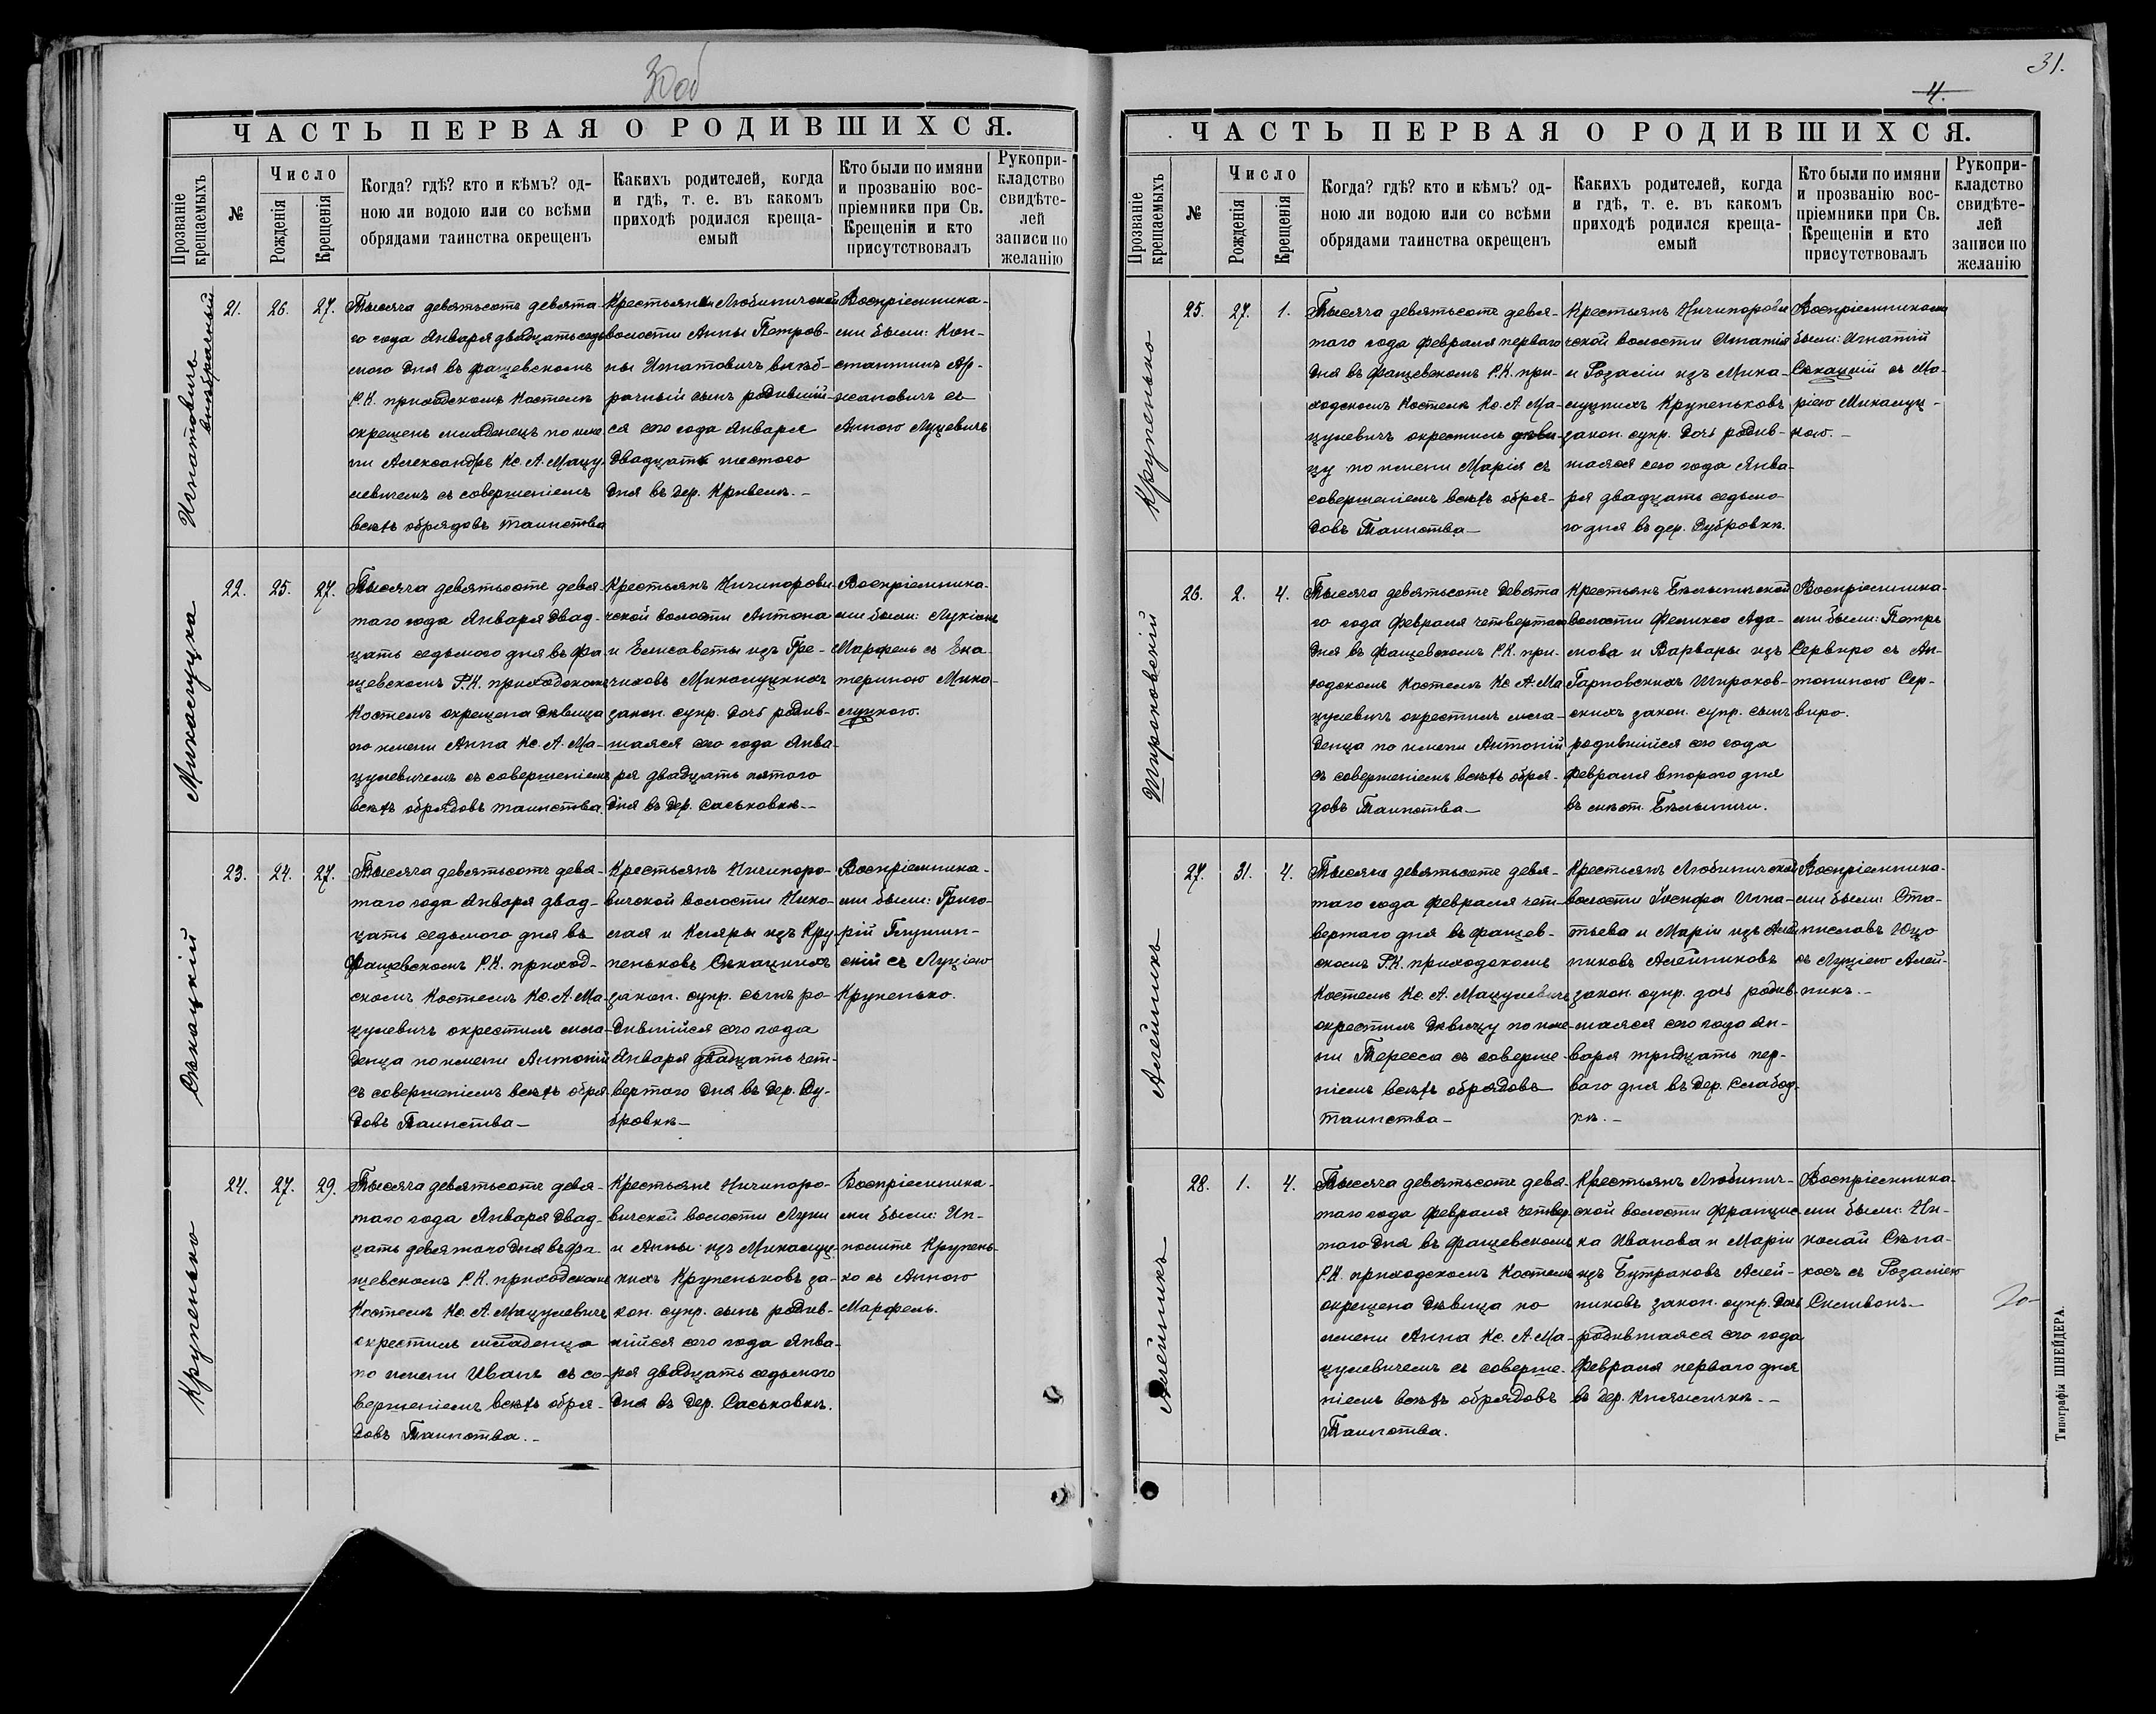 30об
ЧАСТЬ ПЕРВАЯ О РОДИВШИХСЯ.
Прозваніе крещаемыхъ
№
Число
Рожденія
Крещенія
Когда? гдѣ? кто и кѣмъ? од-
ною ли водою или со всѣми
обрядами таинства окрещенъ
Какихъ родителей, когда
и гдѣ, т. е. въ какомъ
приходѣ родился креща-
емый
Кто были по имяни
и прозванію вос-
пріемники при Св.
Крещеніи и кто
присутствовалъ
Рукопри-
кладство
свидѣте-
лей
записи по
желанію
Игнатовичъ
внѣбрачный
21.
26.
27.
Тысяча девятьсотъ девята-
го года Января двадцать седь
мого дня въ Фащевскомъ
Р.К. приходскомъ Костелѣ
окрещенъ младенецъ по име-
ни Александръ Кс. А. Мацу-
левичемъ съ совершеніемъ
всѣхъ обрядовъ таинства
Крестьянки Любиничской
волости Анны Петров-
ны Игнатовичъ внѣб-
рачный сынъ родившій-
ся сего года Января
двадцать шестого
дня въ дер. Кривелѣ.-
Воспріемника-
ми были: Кон-
стантинъ Ар-
жановичъ съ
Анною Луцевичъ
Миколуцка
22.
25.
27.
Тысяча девятьсотъ девя-
таго года Января двад-
цать седьмого дня въ Фа-
щевскомъ Р.К. приходскомъ
Костелѣ окрещена дѣвица
по имени Анна Кс. А. Ма-
цулевичемъ съ совершеніемъ
всѣхъ обрядовъ таинства.
Крестьянъ Ничипорови-
чской волости Антона
и Елисаветы изъ Гре-
чиховъ Миколуцкихъ
закон. супр. дочь родив-
шаяся сего года Янва-
ря двадцать пятого
дня въ дер. Саськовкѣ.-
Воспріемника-
ми были: Лукіонъ
Марфель съ Ека
териною Мико-
луцкою.
Сѣкацкій
23.
24.
27.
Тысяча девятьсотъ девя-
таго года Января двад-
цать седьмого дня въ
Фащевскомъ Р.К. приход-
скомъ Костелѣ Кс. А. Ма-
цулевичъ окрестилъ мла-
денца по имени Антоній
съ совершеніемъ всѣхъ обря-
довъ Таинства-
Крестьянъ Ничипоро-
вичской волости Нико-
лая и Кляры изъ Кру-
пеньковъ Сѣкацкихъ
закон. супр. сынъ ро-
дившійся сего года
Января двадцать чет-
вертаго дня въ дер. Ду-
бровкѣ-
Воспріемника-
ми были: Григо-
рій Глушин-
скій съ Луціею
Крупенько.
Крупенько
24.
27.
29.
Тысяча девятьсотъ девя-
таго года Января двад-
цать девятого дня въ Фа-
щевскомъ Р.К. приходскомъ
Костелѣ Кс. А. Мацулевичъ
окрестилъ младенца
по имени Иванъ съ со-
вершеніемъ всѣхъ обря-
довъ Таинства.-
Крестьянъ Ничипоро-
вичской волости Луки
и Анны изъ Миколуц-
кихъ Крупеньковъ за-
кон. супр. сынъ родив-
шійся сего года Янва-
ря двадцать седьмого
дня въ дер. Саськовкѣ.
Воспріемника-
ми были: Ип-
политъ Крупень-
ко съ Анною
Марфель.
31.
4.
ЧАСТЬ ПЕРВАЯ О РОДИВШИХСЯ.
Прозваніе крещаемыхъ
№
Число
Рожденія
Крещенія
Когда? гдѣ? кто и кѣмъ? од-
ною ли водою или со всѣми
обрядами таинства окрещенъ
Какихъ родителей, когда
и гдѣ, т. е. въ какомъ
приходѣ родился креща-
емый
Кто были по имяни
и прозванію вос-
пріемники при Св.
Крещеніи и кто
присутствовалъ
Рукопри-
кладство
свидѣте-
лей
записи по
желанію
Крупенько
25.
27.
1.
Тысяча девятьсотъ девя-
таго года Февраля перваго
дня въ Фащевскомъ Р.К. при-
ходскомъ Костелѣ Кс. А. Ма-
цулевичъ окрестилъ дѣви-
цу по имени Марія съ
совершеніемъ всѣхъ обря-
довъ Таинства-
Крестьянъ Ничипорови
чской волости Игнатія
и Розаліи изъ Мико-
луцкихъ Крупеньковъ
закон. супр. дочь родив-
шаяся сего года Янва-
ря двадцать седьмо-
го дня въ дер. Дубровкѣ.
Воспріемниками
были: Игнатій
Сѣкацкій съ Ма-
ріею Миколуц-
кою.-
Широковскій
26.
2.
4.
Тысяча девятьсотъ девята
го года Февраля четвертаго
дня въ Фащевскомъ Р.К. при-
ходскомъ Костелѣ Кс. А. Ма
цулевичъ окрестилъ мла-
денца по имени Антоній
съ совершеніемъ всѣхъ обря-
довъ Таинства-
Крестьянъ Бѣлыничской
волости Феликса Ада-
мова и Варвары изъ
Гарновскихъ Широков-
скихъ закон. супр. сынъ
родившійся сего года
Февраля второго дня
въ мѣст. Бѣлыничи.
Воспріемника-
ми были: Петръ
Сервиро съ Ан-
тониною Сер-
виро.
Алейникъ
27.
31.
4.
Тысяча девятьсотъ девя-
таго года Февраля чет-
вертаго дня въ Фащев-
скомъ Р.К. приходскомъ
Костелѣ Кс. А. Мацулевичъ
окрестилъ дѣвицу по име-
ни Тересса съ соверше-
ніемъ всѣхъ обрядовъ
таинства-
Крестьянъ Любиничской
волости Іосифа Игна-
тьева и Маріи изъ Алей
никовъ Алейниковъ
закон. супр. дочь родив-
шаяся сего года Ян-
варя тридцать пер-
ваго дня въ дер. Слабод-
кѣ.-
Воспріемника-
ми были: Ста-
ниславъ Юцо
съ Луціею Алей-
никъ.-
Алейникъ
28.
1.
4.
Тысяча девятьсотъ девя-
таго года Февраля четвер-
таго дня въ Фащевскомъ
Р.К. приходскомъ Костелѣ
окрещена дѣвица по
имени Анна Кс. А. Ма-
цулевичемъ съ соверше-
ніемъ всѣхъ обрядовъ
Таинства.
Крестьянъ Любинич-
ской волости Францис-
ка Иванова и Маріи
изъ Бутраковъ Алей-
никовъ закон. супр. дочь
родившаяся сего года
Февраля перваго дня
въ дер. Княжичкѣ.-
Воспріемника-
ми были: Ни-
колай Слѣпа-
кось съ Розаліею
Силивонъ.-
Типографія ШНЕЙДЕРА.